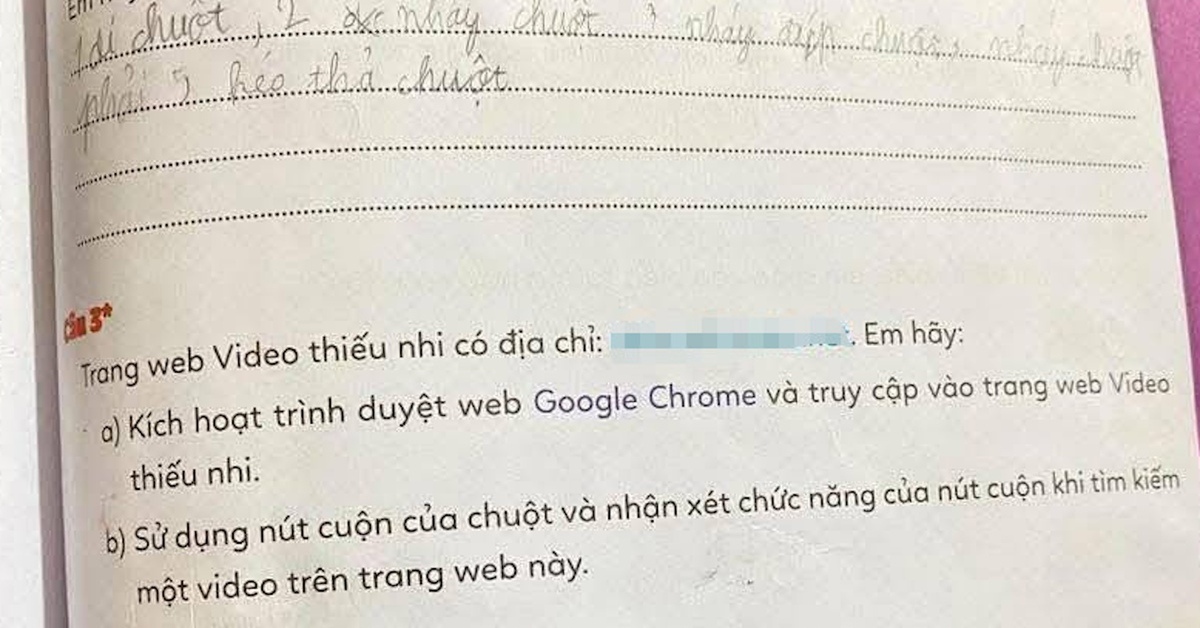 Em
1 di chuột, 2 nháy chuột 3 nháy đúp chuột, nháy chuột
phải 5 kéo thả chuột
Câu 3*
Trang web Video thiếu nhi có địa chỉ: . Em hãy:
a) Kích hoạt trình duyệt web Google Chrome và truy cập vào trang web Video
thiếu nhi.
b) Sử dụng nút cuộn của chuột và nhận xét chức năng của nút cuộn khi tìm kiếm
một video trên trang web này.